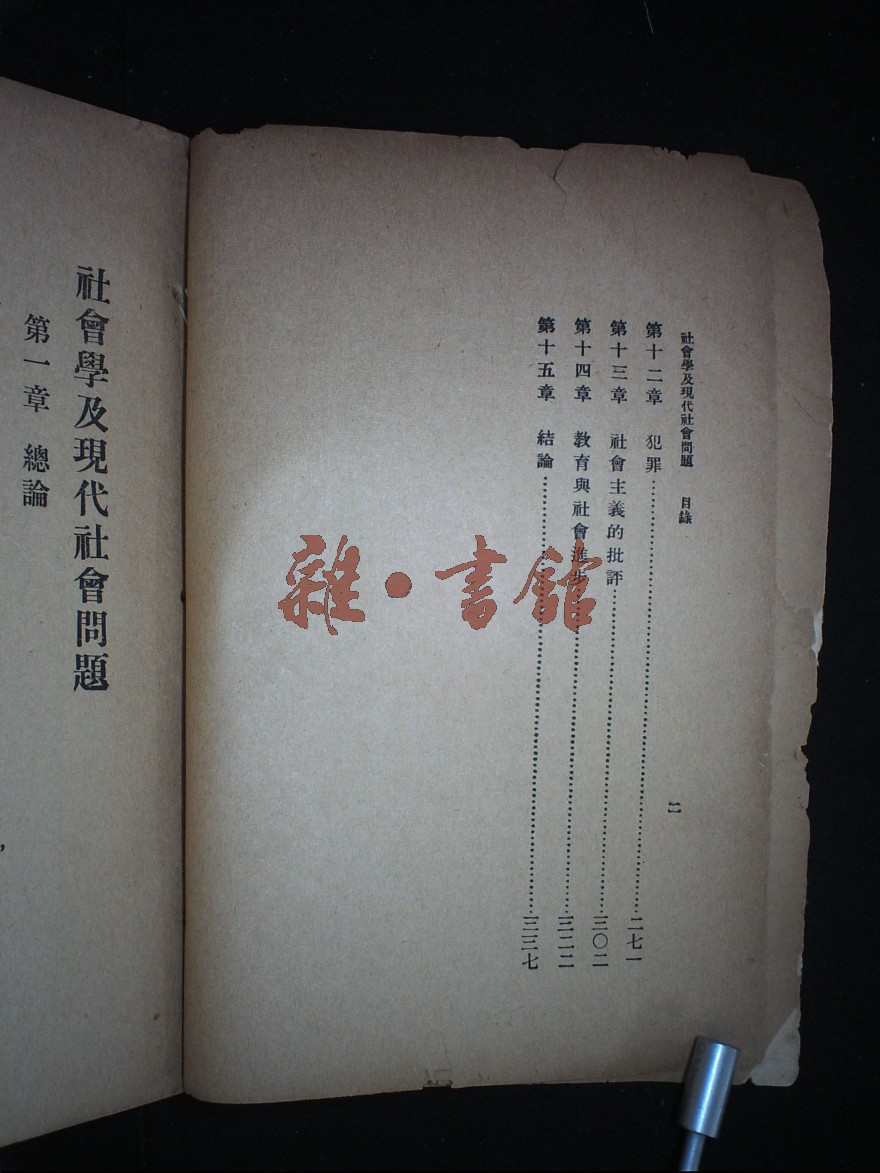 社會學及現代社會問題 目錄
二
第十二章 犯罪……二七一
第十三章 社會主義的批評……三〇二
第十四章 教育與社會進步……三二二
第十五章 結論……三三七
社會學及現代社會問題
第一章 總論
雜·書館